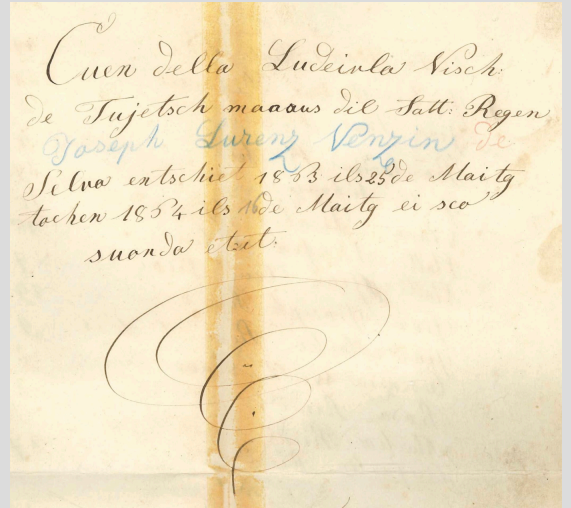 Cuen della Ludeivla Visch:
de Tujetsch maaaus dil Satt: Regen
Joseph Lurenz Venzin de
Selva entschiet 1863 ils 25 de Maitg
tochen 1864 ils 16 de Maitg ei sco
suonda etc: